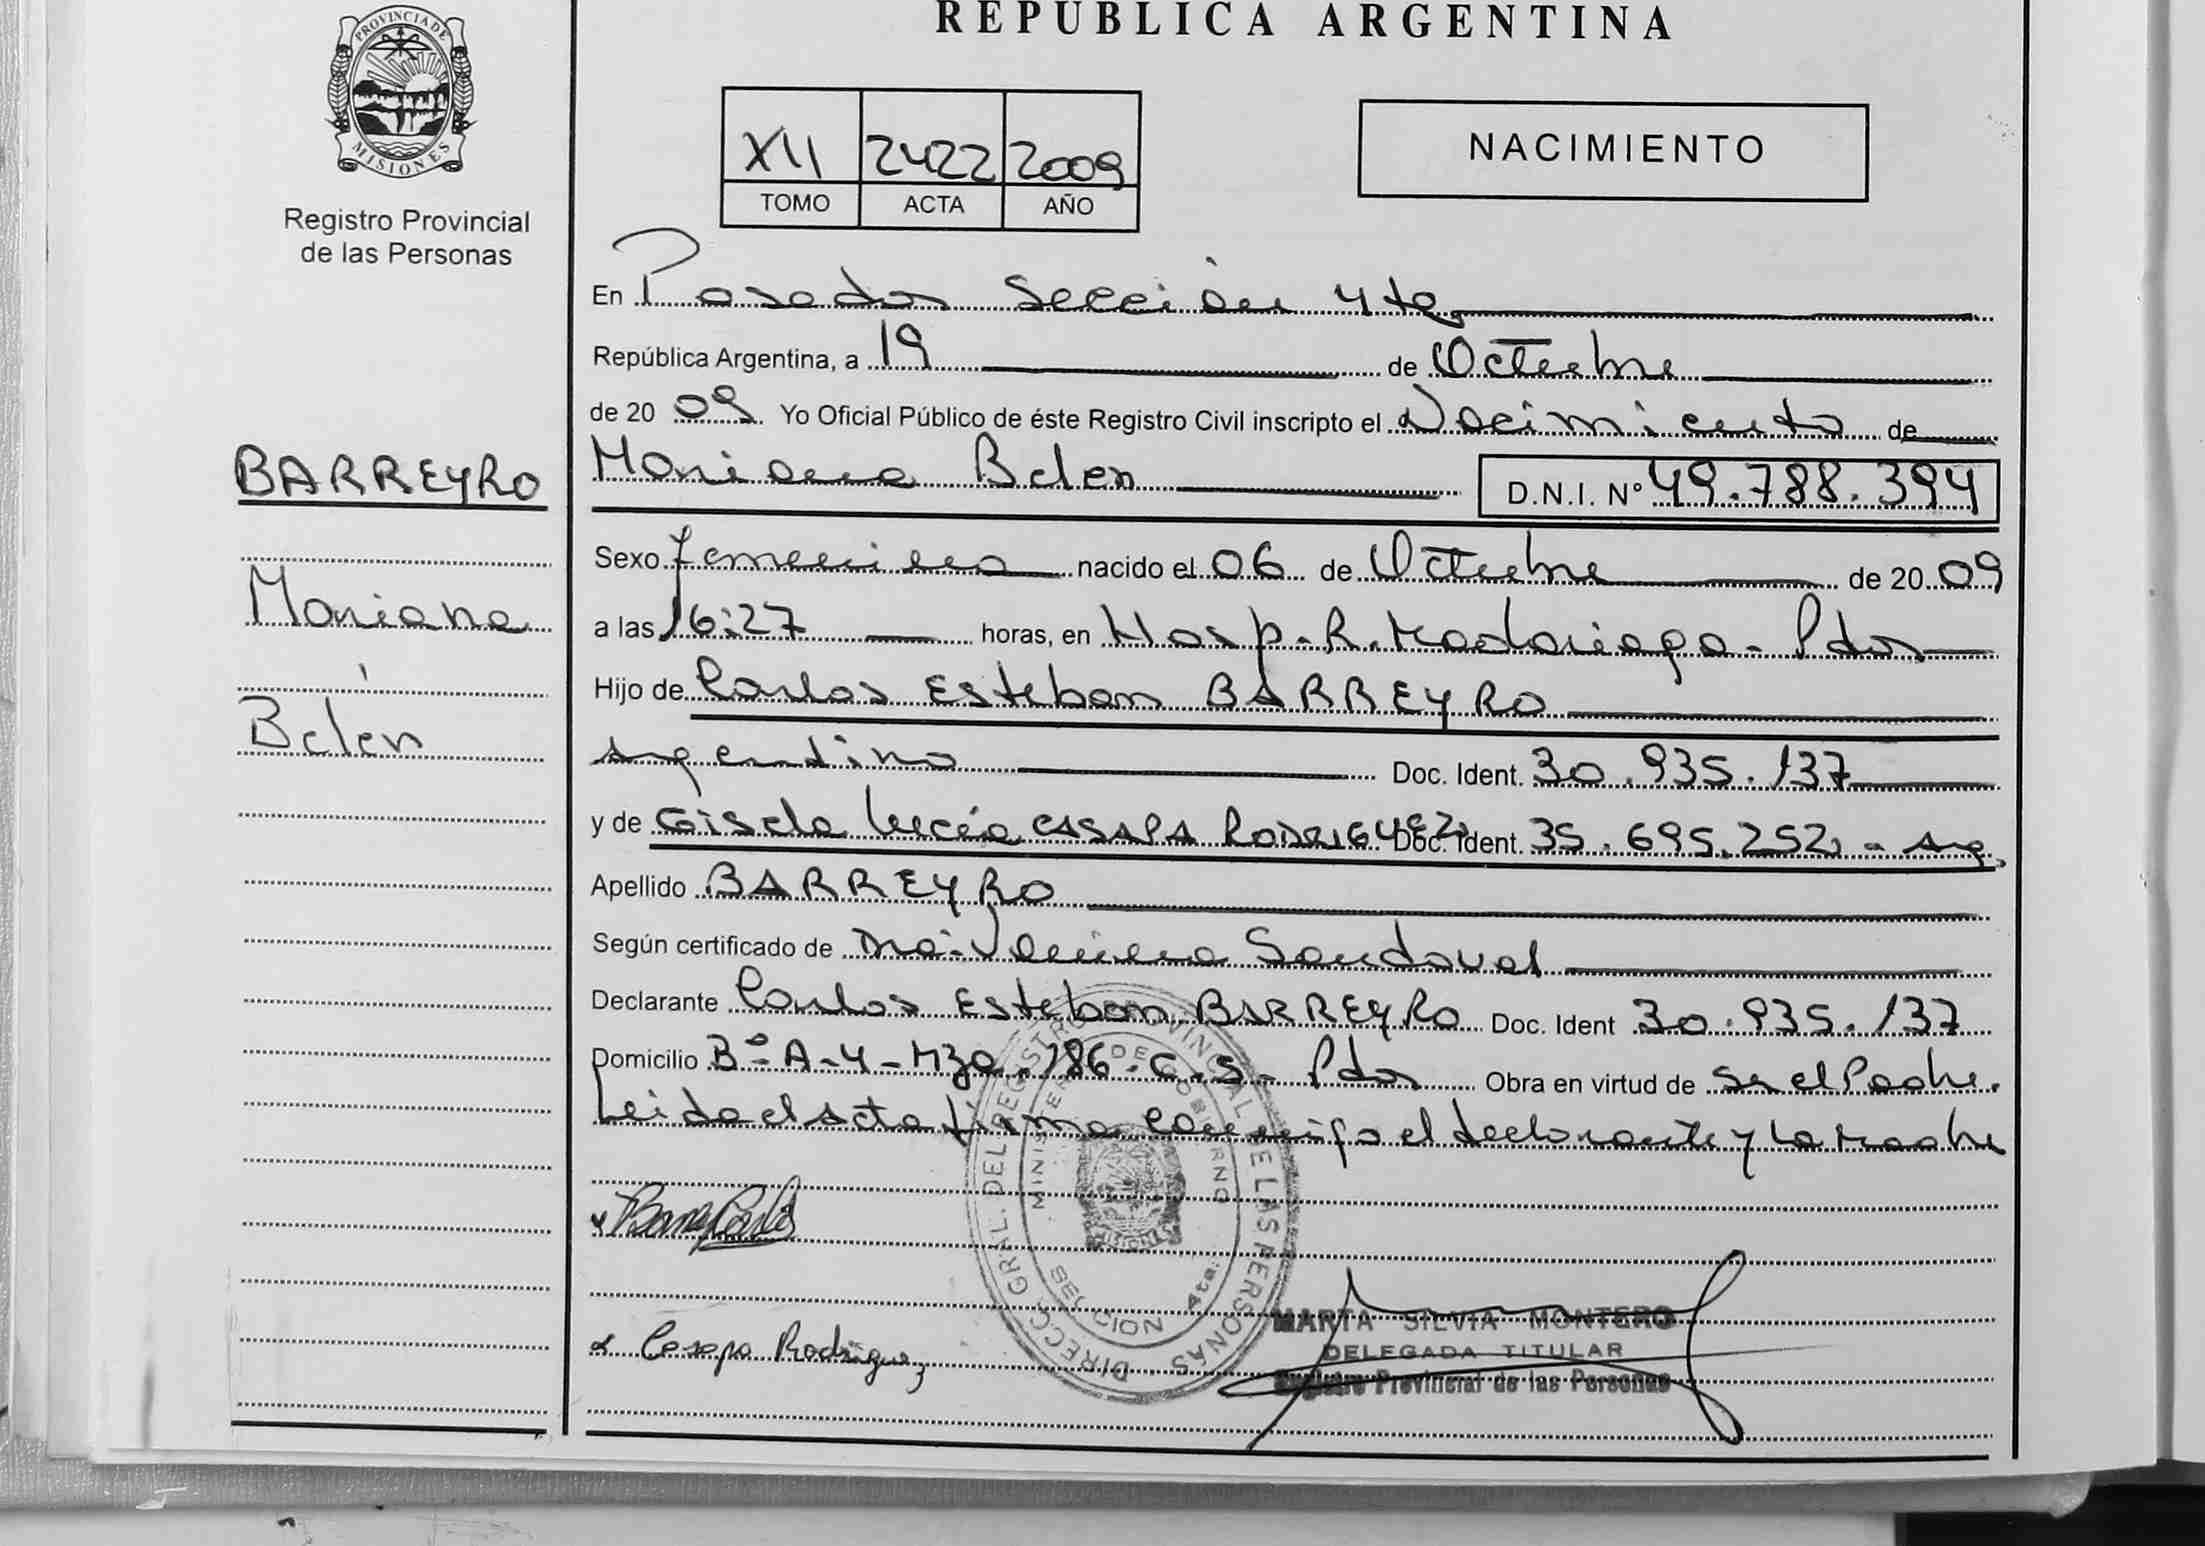 REPUBLICA ARGENTINA
PROVINCIA DE
MISIONES
Registro Provincial
de las Personas
XII 2422 2009
TOMO ACTA AÑO
NACIMIENTO
En Posadas Sección 4ta
República Argentina, a 19 de Octubre
de 20 09 Yo Oficial Público de éste Registro Civil inscripto el Nacimiento de
BARREYRO
Mariana
Belén
Mariana Belen D.N.I. Nº 49.788.394
Sexo femenino nacido el 06 de Octubre de 20 09
a las 16:27 horas, en Hosp. R. Madariaga - Pdas
Hijo de Carlos Esteban BARREYRO
Argentino Doc. Ident. 30.935.137
y de Gisela Lucía CASAPA RODRIGUEZ Doc. Ident. 35.695.252 - Arg.
Apellido BARREYRO
Según certificado de Sandoval
Declarante Carlos Esteban BARREYRO Doc. Ident 30.935.137
Domicilio Bº A-4 - Mza. 186 - C.S - Pdas Obra en virtud de Ser el Padre.
Leida el Acta firma conmigo el declarante y la madre
DIRECC. GRAL. DEL REGISTRO PROVINCIAL DE LAS PERSONAS
MINISTERIO DE GOBIERNO
MISIONES
SECCION 4ta.
Casapa Rodriguez
MARTA SILVIA MONTERO
DELEGADA TITULAR
Registro Provincial de las Personas